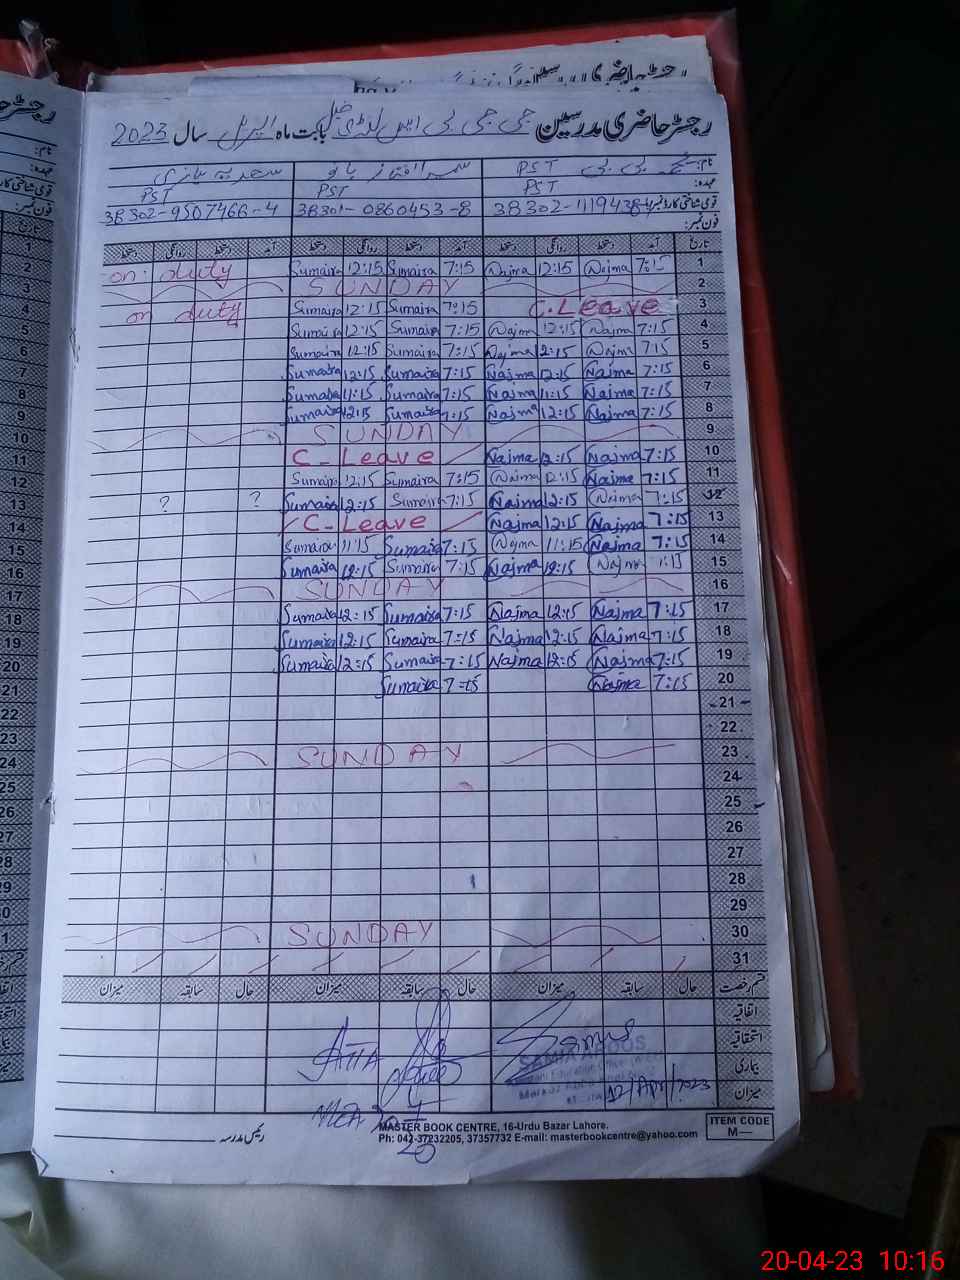 رجسٹر حاضری مدرسین جی جی پی ایس لنڈی خیل بابت ماہ اپریل سال 2023
نام: نجمہ بی بی PST سمیرا امتیاز بانو سعدیہ نیازی
عہدہ: PST PST PST
قومی شناختی کارڈ نمبر: 38301-0860453-8 38302-9507466-4
فون نمبر:
تاریخ آمد دستخط روانگی دستخط آمد دستخط روانگی دستخط آمد دستخط روانگی دستخط
1 7:15 Najma 12:15 Najma 7:15 Sumaira 12:15 Sumaira on duty
2 SUNDAY
3 C.Leave 7:15 Sumaira 12:15 Sumaira on duty
4 7:15 Najma 12:15 Najma 7:15 Sumaira 12:15 Sumaira
5 7:15 Najma 12:15 Najma 7:15 Sumaira 12:15 Sumaira
6 7:15 Najma 12:15 Najma 7:15 Sumaira 12:15 Sumaira
7 7:15 Najma 11:15 Najma 7:15 Sumaira 11:15 Sumaira
8 7:15 Najma 12:15 Najma 7:15 Sumaira 12:15 Sumaira
9 SUNDAY
10 7:15 Najma 12:15 Najma C-Leave
11 7:15 Najma 12:15 Najma 7:15 Sumaira 12:15 Sumaira
12 7:15 Najma 12:15 Najma 7:15 Sumaira 12:15 Sumaira ? ?
13 7:15 Najma 12:15 Najma C-Leave
14 7:15 Najma 11:15 Najma 7:15 Sumaira 11:15 Sumaira
15 7:15 Najma 12:15 Najma 7:15 Sumaira 12:15 Sumaira
16 SUNDAY
17 7:15 Najma 12:15 Najma 7:15 Sumaira 12:15 Sumaira
18 7:15 Najma 12:15 Najma 7:15 Sumaira 12:15 Sumaira
19 7:15 Najma 12:15 Najma 7:15 Sumaira 12:15 Sumaira
20 7:15 Najma 7:15 Sumaira
21
22
23 SUNDAY
24
25
26
27
28
29
30 SUNDAY
31
قسم رخصت حال سابقہ میزان حال سابقہ میزان حال سابقہ میزان
اتفاقیہ
استحقاقیہ
بیماری
میزان
ATTA
SAMIA AROOS
12/Apr/2023
MEA
20-4
رئیس مدرسہ
MASTER BOOK CENTRE, 16-Urdu Bazar Lahore.
Ph: 042-37232205, 37357732 E-mail: masterbookcentre@yahoo.com
ITEM CODE
M—
20-04-23 10:16